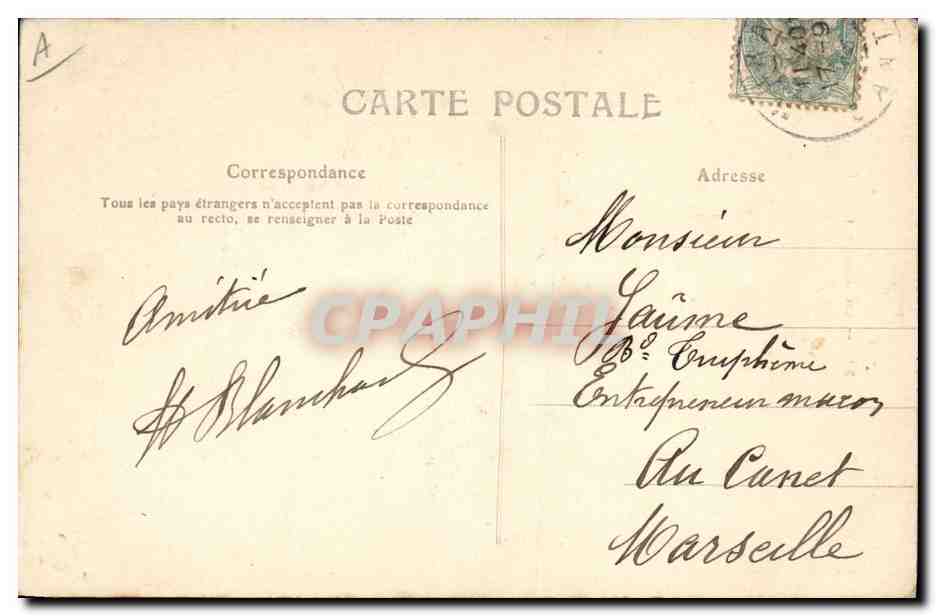 A
CARTE POSTALE
Correspondance
Tous les pays étrangers n'acceptent pas la correspondance
au recto, se renseigner à la Poste
Amitié
H Blanchard
Adresse
Monsieur
Jaûme
Bd. Truphème
Entrepreneur maçon
Au Canet
Marseille
CPAPHIL